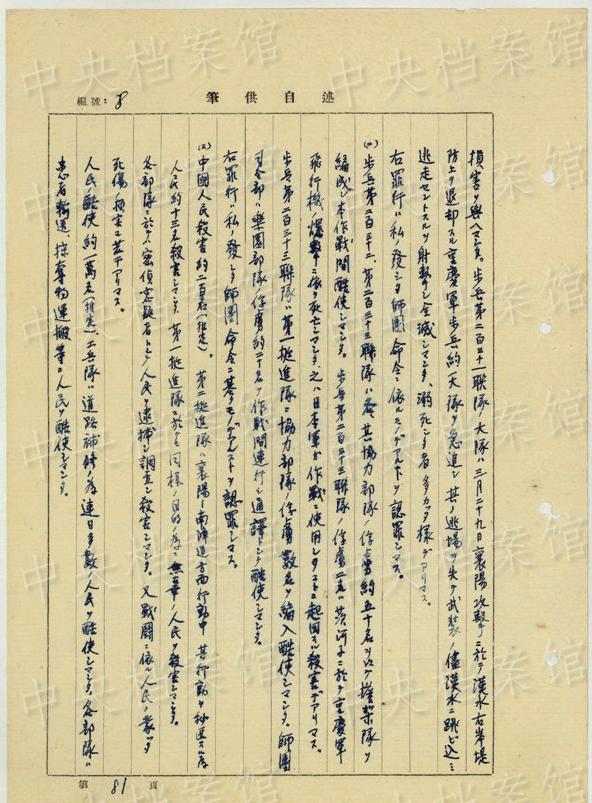 中央档案馆
編號：8
筆供自述
損害ヲ與ヘマシタ。歩兵第二百三十一聯隊ノ大隊ハ三月二十九日襄陽攻撃ニ於テ漢水右岸堤
防上ヲ退却スル重慶軍歩兵約一大隊ヲ急追シ其ノ逃場ヲ失ヒ武装ノ儘漢水ニ跳ビ込ミ
逃走セントスルヲ射撃シ全滅シマシタ、溺死シタ者多カッタ様デアリマス。
右罪行ハ私ノ發シタ師團命令ニ依ルモノデアルト認罪シマス。
歩兵第二百三十二、第二百三十三聯隊ハ各其協力部隊ノ俘虜約五十名ヲ以テ
編成シ本作戰間酷使シマシタ。歩兵第二百三十三聯隊ノ俘虜二名ハ於テ重慶軍
飛行機ノ爆撃ニ依リ死亡シマシタ、之ハ日本軍ガ作戰ニ使用シタコトニ起因スル殺害デアリマス。
歩兵第二百三十三聯隊ハ第一挺進隊ニ協力部隊ノ俘虜數名ヲ編入酷使シマシタ。師團
司令部ハ俘虜約二十名ヲ作戰間連行シ通譯トシテ酷使シマシタ。
右罪行ハ私ノ發シタ師團命令ニ基クモノデアルコトヲ認罪シマス。
(2) 中國人民殺害約二百名（推定）。第二挺進隊ハ襄陽ー南漳道方面行動中其行動ヲ秘匿スル為
人民約十三名殺害シマシタ。第一挺進隊ニ於テモ同様ノ目的ノ為ニ無辜ノ人民ヲ殺害シマシタ。
各部隊ニ於テハ密偵容疑者トシテ人民ヲ逮捕シ調査シ殺害シマシタ。又戰闘ニ依ル人民ノ蒙ッタ
死傷、損害モ若干アリマス。
人民ノ酷使約一萬名（推定）。工兵隊ハ道路補修ノ為連日多數ノ人民ヲ酷使シマシタ。各部隊ハ
患者輸送、掠奪物運搬等ニ人民ヲ酷使シマシタ。
第 81 頁